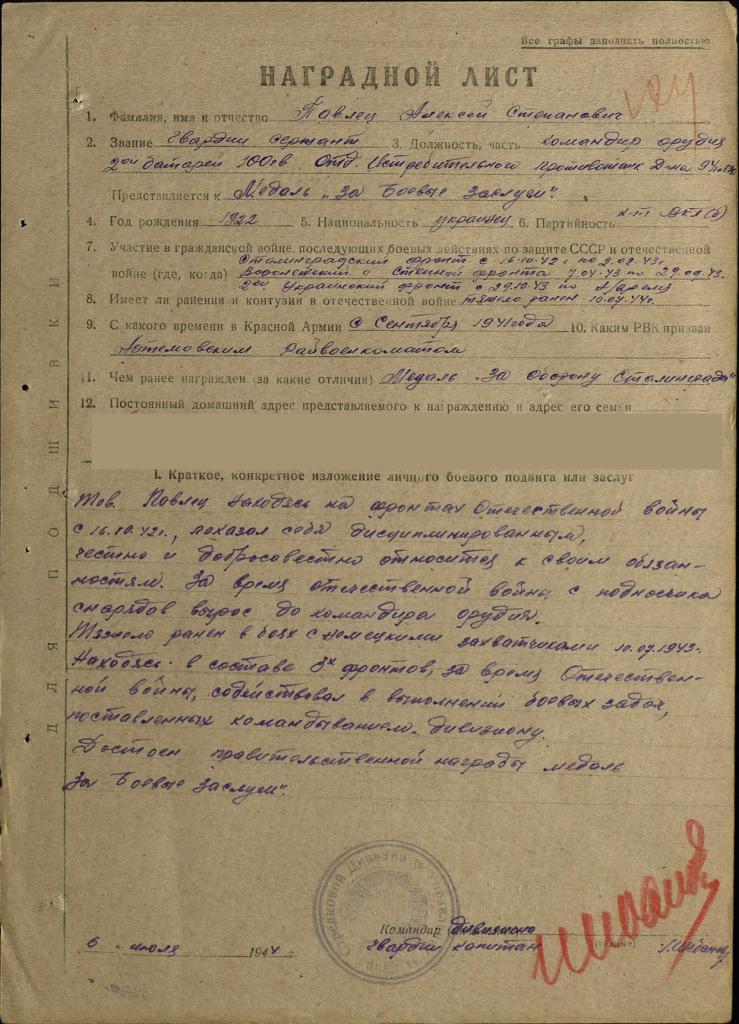 Все графы заполнить полностью
НАГРАДНОЙ ЛИСТ
1. Фамилия, имя и отчество Павлец Алексей Степанович
2. Звание Гвардии Сержант 3. Должность, часть командир орудия
2ой батареи 100гв. Отд. Истребительного противотанк Д-на
Представляется к Медаль „За Боевые Заслуги".
4. Год рождения 1922 5. Национальность украинец 6. Партийность к-т ВКП(б)
7. Участие в гражданской войне, последующих боевых действиях по защите СССР и отечественной
Сталинградский фронт с 16.10.42г по 2.02.43г.
войне (где, когда) Воронежский и Степной фронта 7.07.43 по 29.09.43.
2ой Украинский фронт с 29.10.43 по
8. Имеет ли ранения и контузии в отечественной войне тяжело ранен 10.07.
9. С какого времени в Красной Армии с Сентября 1941года 10. Каким РВК призван
Артемовским Райвоенкоматом
11. Чем ранее награжден (за какие отличия) Медаль „За Оборону Сталинграда"
12. Постоянный домашний адрес представляемого к награждению и адрес его семьи
I. Краткое, конкретное изложение личного боевого подвига или заслуг
Тов. Павлец находясь на фронтах Отечественной войны
с 16.10.42г., показал себя дисциплинированным,
честно и добросовестно относится к своим обязан-
ностям. За время отечественной война с подносчика
снарядов вырос до командира орудия.
Тяжело ранен в боях с немецкими захватчиками 10.07.1943г.
Находясь в составе 3х фронтов, за время Отечествен-
ной войны, содействовал в выполнений боевых задач,
поставленных командыванием дивизиону.
Достоен правительственной награды медаль
„За Боевые Заслуги".
Командир дивизиона
6 июля 1944 г. Гвардии капитан
ДЛЯ ПОДШИВКИ